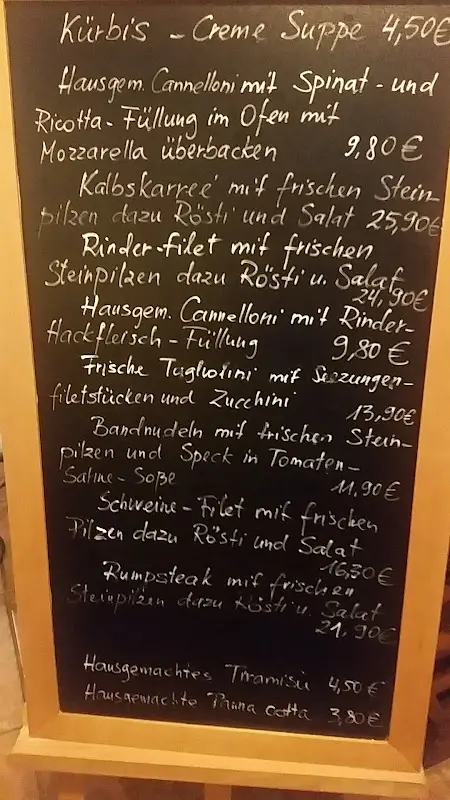 Kürbis - Creme Suppe 4,50€
Hausgem. Cannelloni mit Spinat - und
Ricotta - Füllung im Ofen mit
Mozzarella überbacken 9,80€
Kalbskarreé mit frischen Stein-
pilzen dazu Rösti und Salat 25,90€
Rinder-filet mit frischen
Steinpilzen dazu Rösti u. Salat
24,90€
Hausgem. Cannelloni mit Rinder-
Hackfleisch - Füllung 9,80€
Frische Tagliolini mit Seezungen-
filetstücken und Zucchini
13,90€
Bandnudeln mit frischen Stein-
pilzen und Speck in Tomaten-
Sahne - Soße
11,90€
Schweine - Filet mit frischen
Pilzen dazu Rösti und Salat
16,30€
Rumpsteak mit frischen
Steinpilzen dazu Rösti u. Salat
21,90€
Hausgemachtes Tiramisu 4,50€
Hausgemachte Panna cotta 3,80€